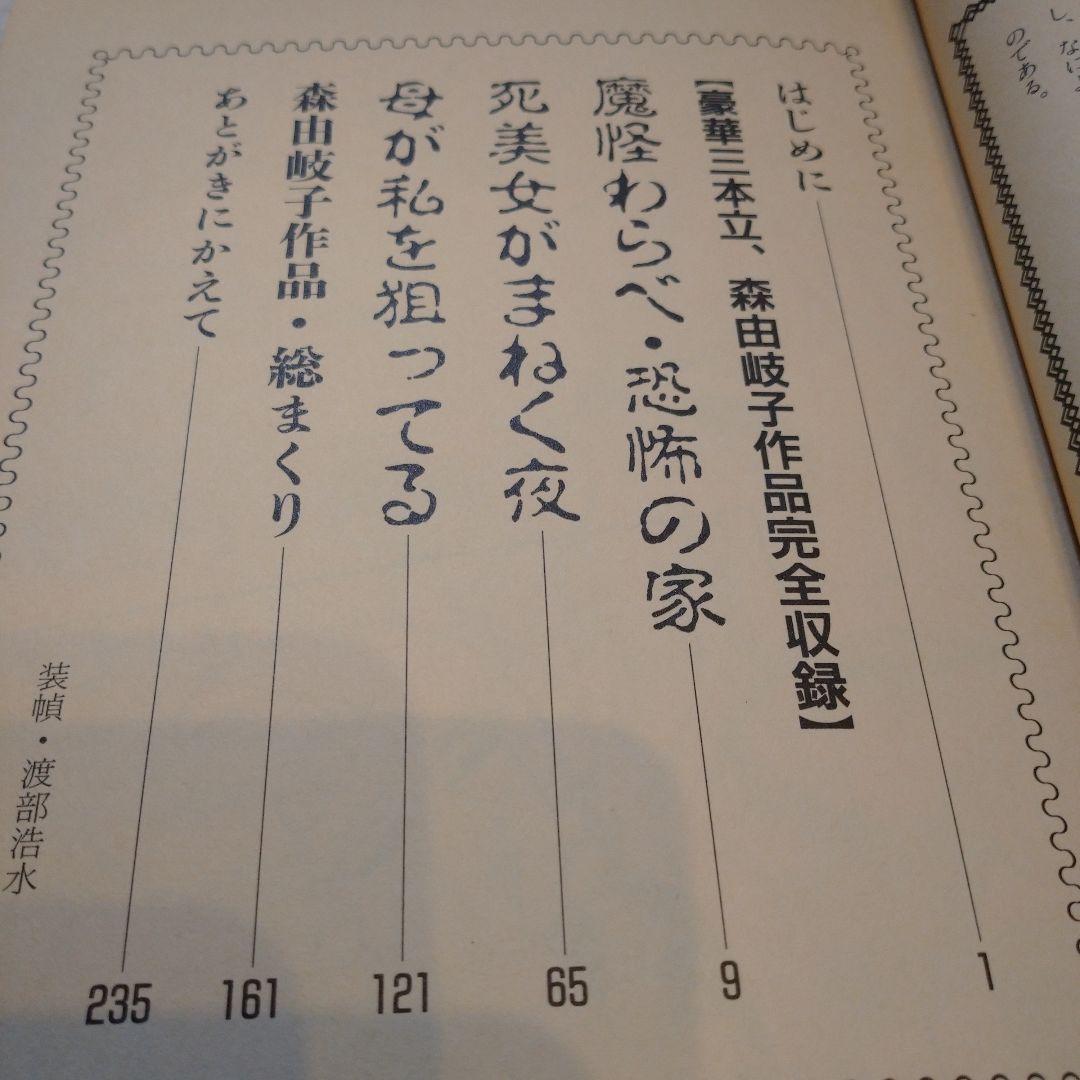 のである。
はじめに 1
【豪華三本立、森由岐子作品完全収録】
魔怪わらべ・恐怖の家 9
死美女がまねく夜 65
母が私を狙ってる 121
森由岐子作品・総まくり 161
あとがきにかえて 235
装幀・渡部浩水